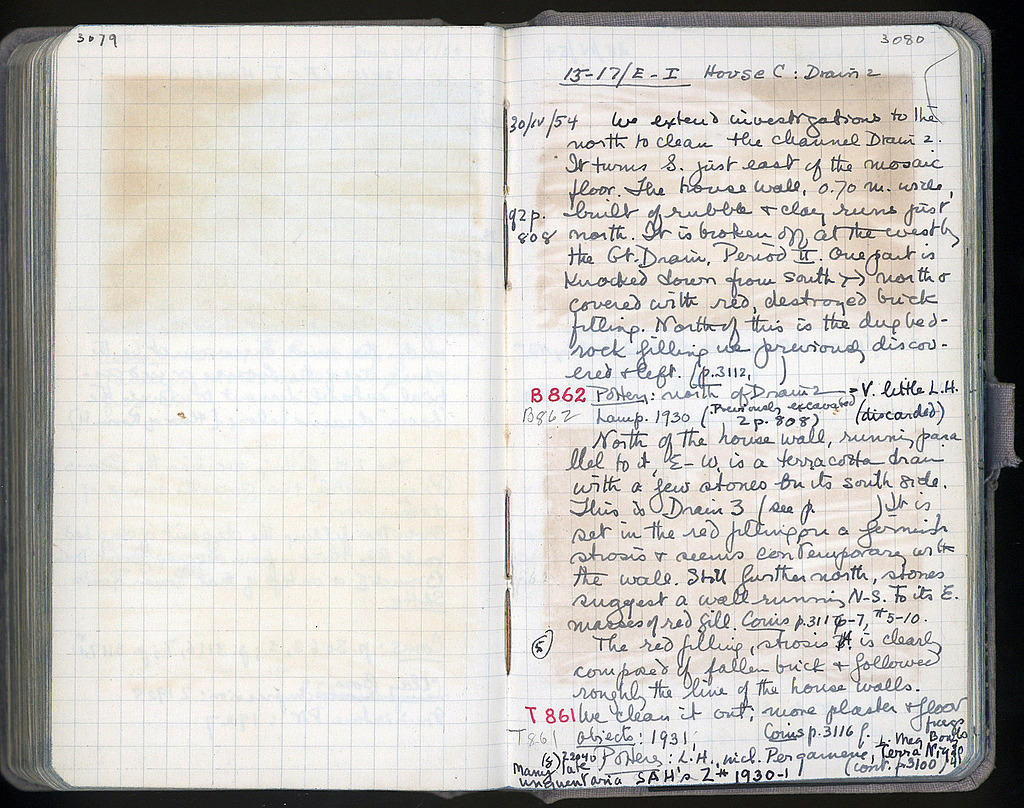 3079
3080
15-17/E-I House C: Drain 2
30/IV/54 We extend investigations to the
north to clean the channel Drain 2.
It turns S. just east of the mosaic
floor. The house wall, 0.70 m. wide,
q2 p. 808 built of rubble + clay runs just
north. It is broken off at the west by
the Gt. Drain, Period II. One part is
knocked down from south → north +
covered with red, destroyed brick
filling. North of this is the dug bed-
rock filling we previously discov-
ered + left. (p. 3112, )
B 862 Pottery: north of Drain 2 → V. little L.H.
B862 Lamp. 1930 (Previously excavated 2 p. 808) (discarded)
North of the house wall, running para
llel to it, E-W, is a terracotta drain
with a few stones on its south side.
This is Drain 3 (see p. ) It is
set in the red filling on a
strosis + seems contemporary with
the wall. Still further north, stones
suggest a wall running N-S. To its E.
masses of red fill. Coins p. 3116-7, #5-10.
(5) The red filling, strosis is clearly
composed of fallen brick + followed
roughly the line of the house walls.
T 861 We clean it out; more plaster + floor frags
T861 Objects: 1931, Coins p. 3116 f.
Pottery: L.H., incl. Pergamene, Terra Nigra, Meg Bowls
Many late unguentaria SAH's 2# 1930-1 (cont. p 3100)